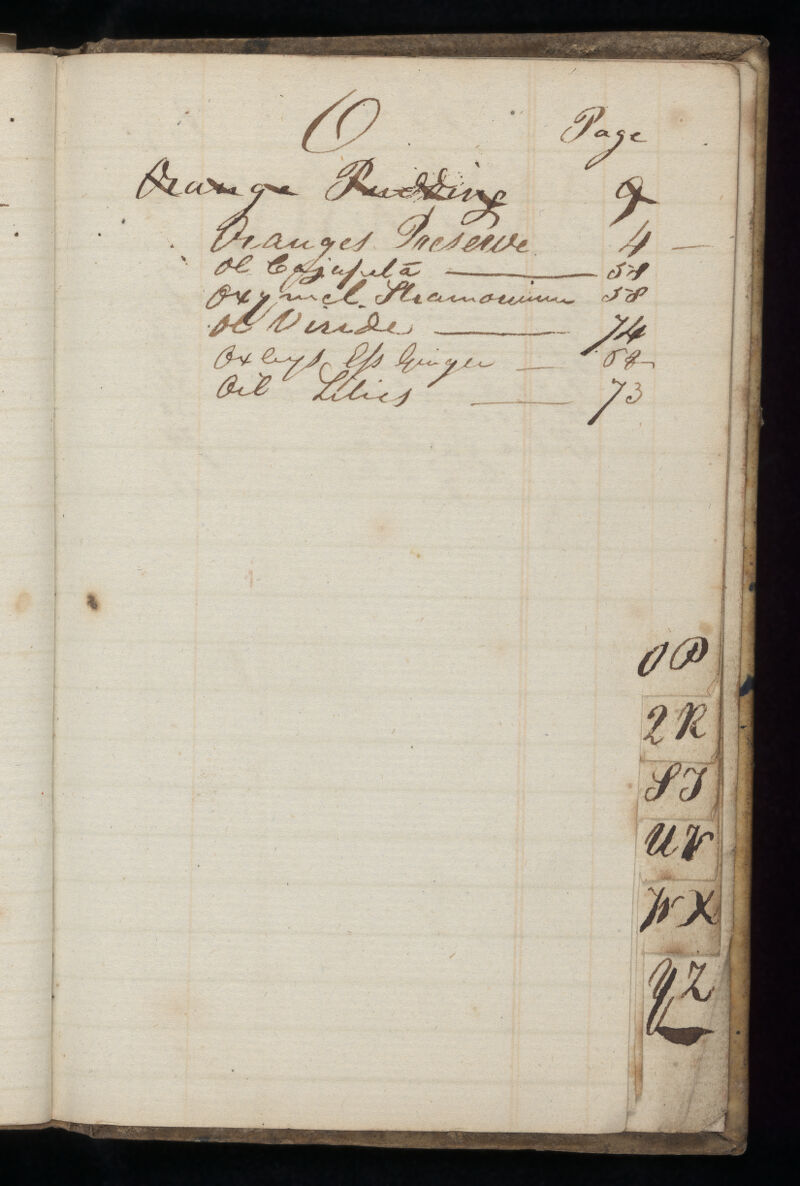 O
Page
Orange Pudding 9
Oranges Preserve 4
Ol Cajaputa 58
Oxymel. Stramonium 58
Ol Viride 74
Oxleys Ess Ginger 68
Oil Lilies 73
O P
Q R
S T
U V
W X
Y Z